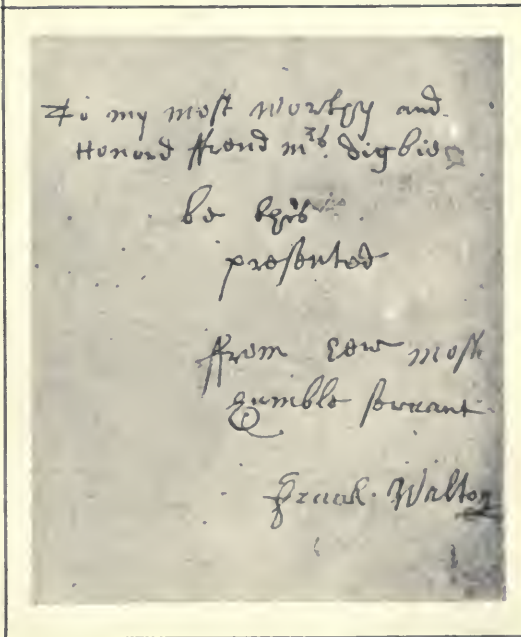 To my most worthy and
Honord ffrend mrs. digbie
be this
presented
ffrom your most
humble seruant
Frank. Walton